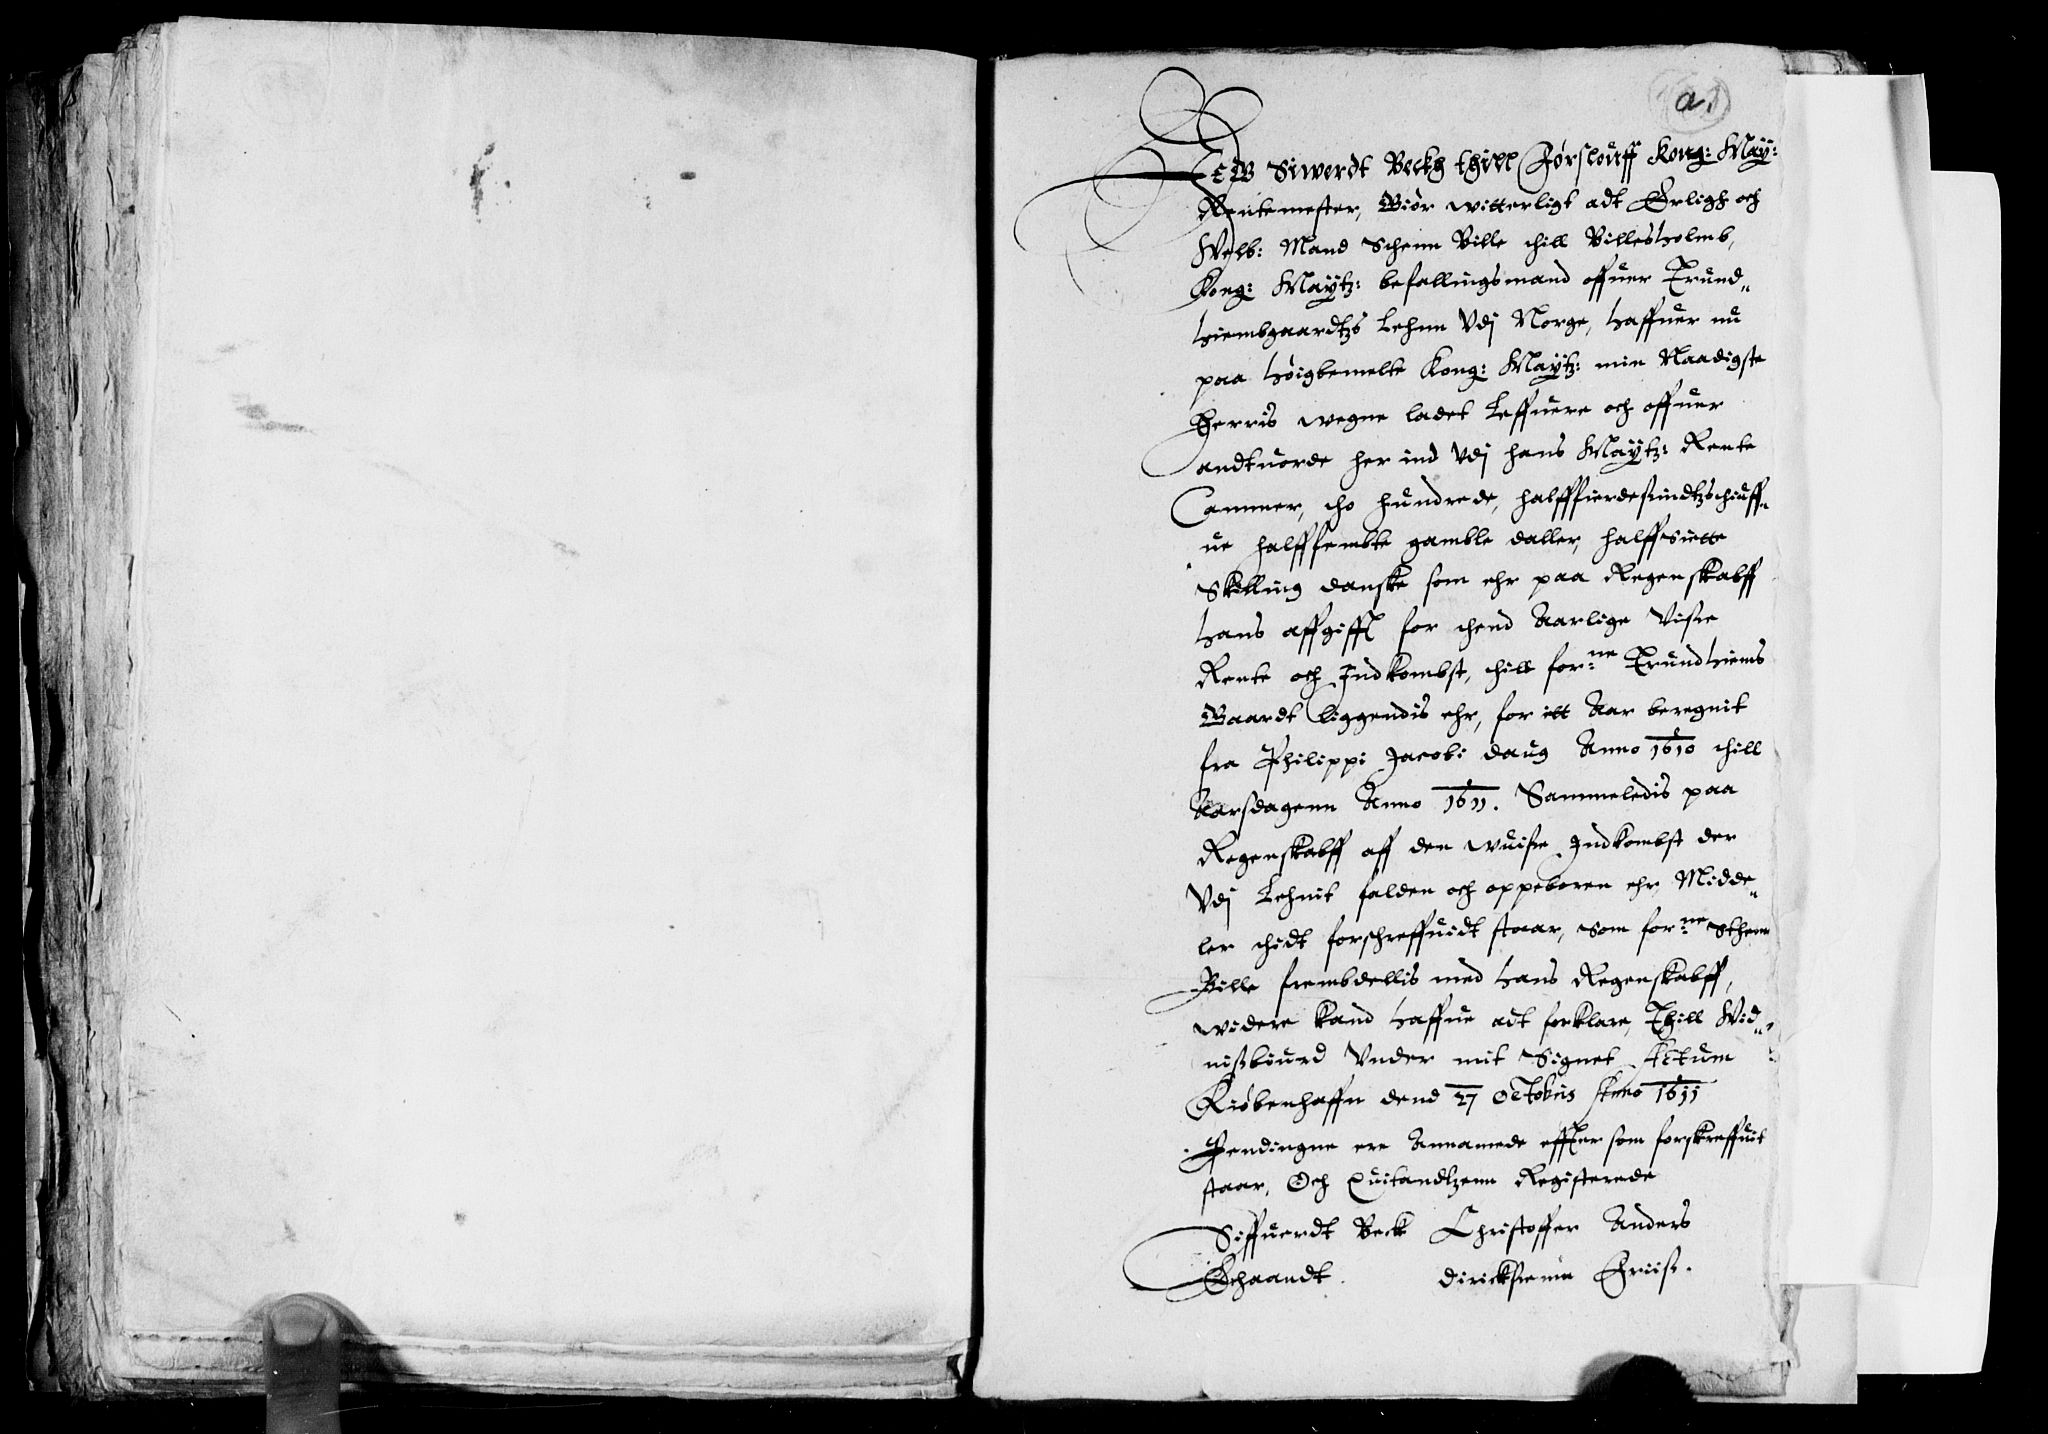 a.
Jeg Siwerdt Beckh thill Førslöuff Kong: May:
Rentemester, Giör witterligt adt Erligh och
Welb: Mand Sthenn Bille thill Billesholmb,
Kong: Maytz: befallingsmand offuer Trund„
hiembgaardtzs Lehnn Vdj Norge, haffuer nu
paa høigbemelte Kong: Maytz: min Naadigste
Herris wegne ladet Leffuere och offuer
andtuorde her ind Vdj hans Maytz: Rente
Cammer, tho hundrede, halfffierdesindtzthiuff„
ue halfffembte gamble daller, halffsiette
Skilling danske som ehr paa Regenskabff
hans affgifft for thend Aarlige Visse
Rente och Indkombst, thill for:ne Trundhiems
Gaardt liggendis ehr, for itt Aar beregnit
fra Philippi Jacobi daug Anno 1610 thill
Aarsdagenn Anno 1611. Sammeledis paa
Regenskabff aff den wuisse Indkombst der
Vdj Lehnit falden och oppeboren ehr Midde„
ler thidt forschreffuidt staar, som for:ne Sthenn
Bille frembdellis med hans Regenskabff,
widere kand haffue adt forklare, Thill Wid„
nissbiurd Vnder mit Signet Actum
Kiöbenhaffn dend 27 Octobris Anno 1611
Pendingne ere Annamede effter som forskreffuit
staar, Och Quitandtzenn Registerede
Siffuerdt Beck Christoffer Anders
Schaandt. Dirickssenn Griis.